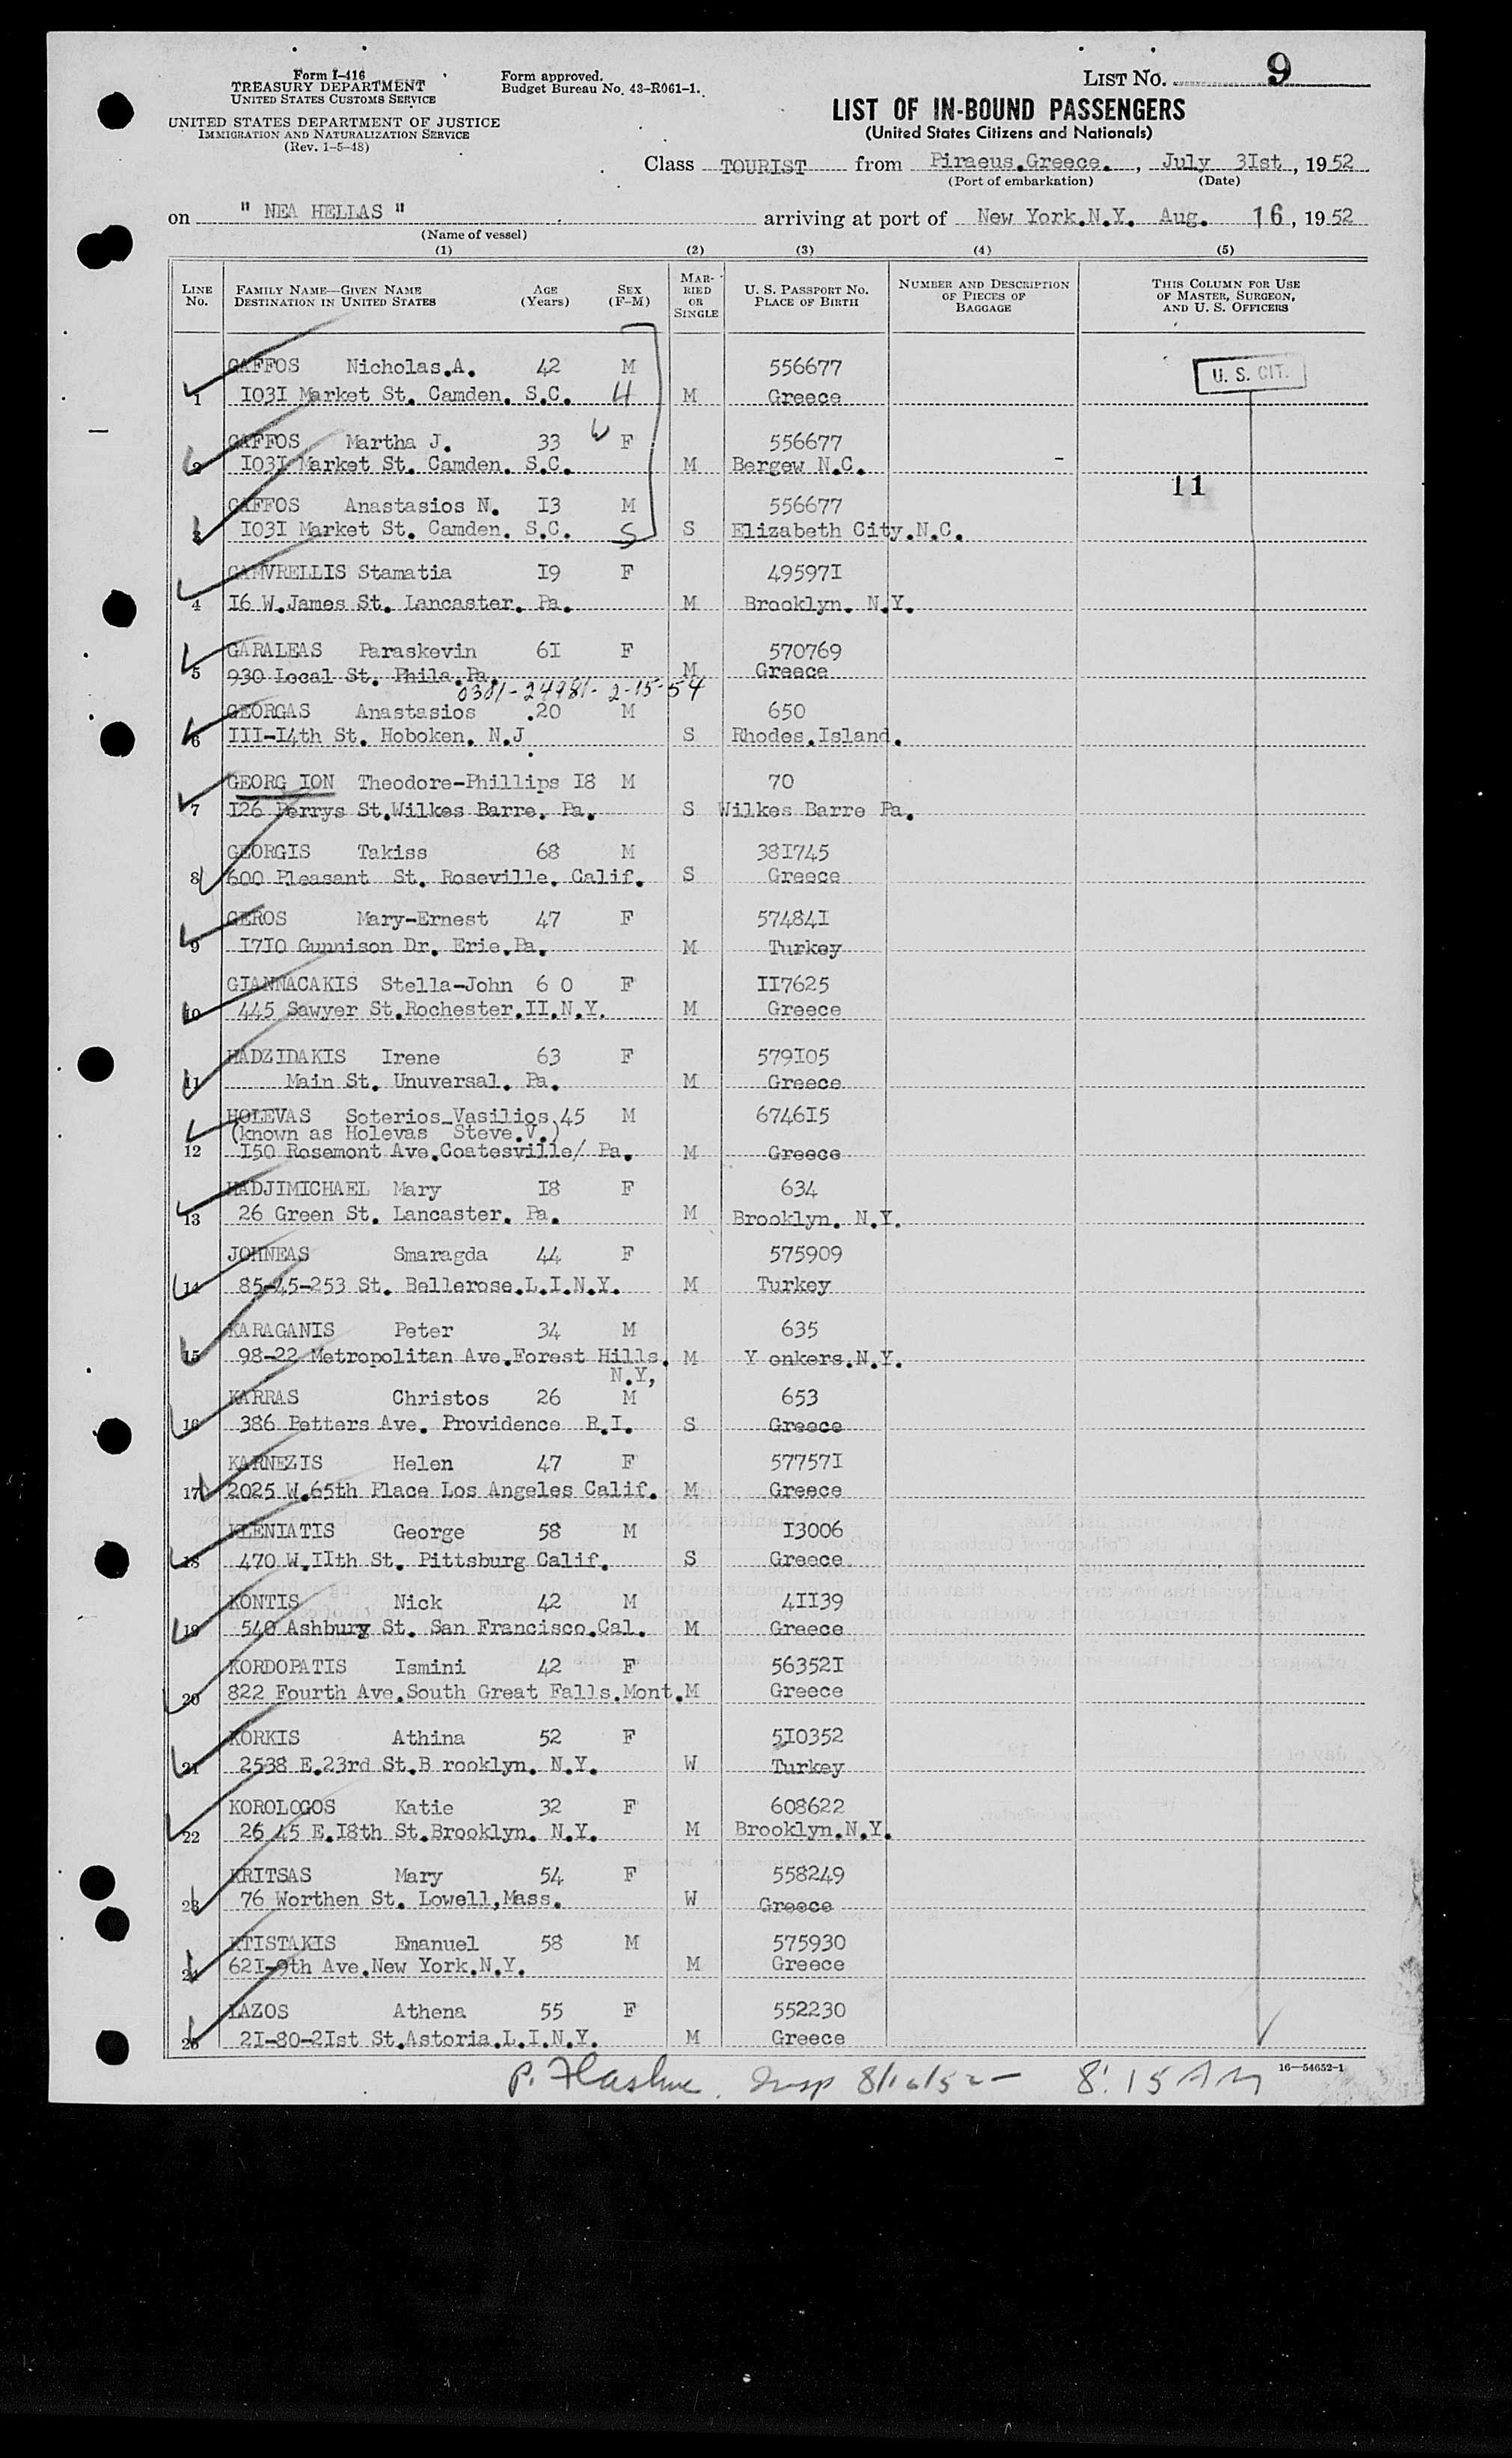 Form I-416
TREASURY DEPARTMENT
UNITED STATES CUSTOMS SERVICE
UNITED STATES DEPARTMENT OF JUSTICE
IMMIGRATION AND NATURALIZATION SERVICE
(Rev. 1-5-48)
Form approved.
Budget Bureau No. 43-R061-1.
LIST NO. 9
LIST OF IN-BOUND PASSENGERS
(United States Citizens and Nationals)
Class TOURIST from Piraeus.Greece. , July 3Ist , 1952
(Port of embarkation) (Date)
on " NEA HELLAS " arriving at port of New York.N.Y. Aug. 16 , 1952
(Name of vessel)
(1) (2) (3) (4) (5)
LINE No. FAMILY NAME—GIVEN NAME DESTINATION IN UNITED STATES AGE (Years) SEX (F-M) MARRIED OR SINGLE U. S. PASSPORT NO. PLACE OF BIRTH NUMBER AND DESCRIPTION OF PIECES OF BAGGAGE THIS COLUMN FOR USE OF MASTER, SURGEON, AND U. S. OFFICERS
GAFFOS Nicholas.A. 42 M 556677 U. S. CIT.
1 I03I Market St. Camden. S.C. H M Greece
GAFFOS Martha J. 33 W F 556677
2 I03I Market St. Camden. S.C. M Bergew N.C.
11
GAFFOS Anastasios N. I3 M 556677
3 I03I Market St. Camden. S.C. S S Elizabeth City.N.C.
GAMVRELLIS Stamatia I9 F 49597I
4 I6 W.James St. Lancaster. Pa. M Brooklyn. N.Y.
GARALEAS Paraskevin 6I F 570769
5 930 Local St. Phila.Pa. M Greece
0381-24981- 2-15-54
GEORGAS Anastasios .20 M 650
6 III-I4th St. Hoboken. N.J. S Rhodes.Island.
GEORG ION Theodore-Phillips I8 M 70
7 I26 Perrys St.Wilkes Barre. Pa. S Wilkes Barre Pa.
GEORGIS Takiss 68 M 38I745
8 600 Pleasant St. Roseville. Calif. S Greece
GEROS Mary-Ernest 47 F 57484I
9 I7I0 Gunnison Dr. Erie.Pa. M Turkey
GIANNACAKIS Stella-John 6 0 F II7625
10 445 Sawyer St.Rochester.II.N.Y. M Greece
HADZIDAKIS Irene 63 F 579I05
11 Main St. Unuversal. Pa. M Greece
HOLEVAS Soterios-Vasilios 45 M 6746I5
(known as Holevas Steve.V.)
12 I50 Rosemont Ave.Coatesville/ Pa. M Greece
HADJIMICHAEL Mary I8 F 634
13 26 Green St. Lancaster. Pa. M Brooklyn. N.Y.
JOHNEAS Smaragda 44 F 575909
14 85-45-253 St. Bellerose.L.I.N.Y. M Turkey
KARAGANIS Peter 34 M 635
15 98-22 Metropolitan Ave.Forest Hills. M Y onkers.N.Y.
N.Y,
KARRAS Christos 26 M 653
16 386 Petters Ave. Providence R.I. S Greece
KARNEZIS Helen 47 F 57757I
17 2025 W.65th Place Los Angeles Calif. M Greece
KLENIATIS George 58 M I3006
18 470 W.IIth St. Pittsburg Calif. S Greece
KONTIS Nick 42 M 4II39
19 540 Ashbury St. San Francisco.Cal. M Greece
KORDOPATIS Ismini 42 F 56352I
20 822 Fourth Ave.South Great Falls.Mont. M Greece
KORKIS Athina 52 F 5I0352
21 2538 E.23rd St.B rooklyn. N.Y. W Turkey
KOROLOGOS Katie 32 F 608622
22 26 45 E.I8th St.Brooklyn. N.Y. M Brooklyn.N.Y.
KRITSAS Mary 54 F 558249
23 76 Worthen St. Lowell,Mass. W Greece
KTISTAKIS Emanuel 58 M 575930
24 62I-9th Ave.New York.N.Y. M Greece
LAZOS Athena 55 F 552230
25 2I-80-2Ist St.Astoria.L.I.N.Y. M Greece
16—54652-1
P. Insp 8/16/52— 8:15 AM